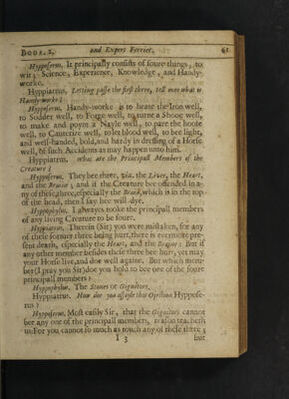 Book. 2. and Expert Ferrier. 61
Hipposerus. It principally consists of foure things, to
wit; Science, Experience, Knowledge, and Handy-
worke.
Hippiatrus. Letting passe the first three, tell mee what is
Handy-worke?
Hipposerus. Handy-worke is to heate the Iron well,
to Sodder well, to Forge well, to turne a Shooe well,
to make and poynt a Nayle well, to pare the hoofe
well, to Cauterize well, to let blood well, to bee light,
and well-handed, bold, and hardy in dressing of a Horse
well, of such Accidents as may happen unto him.
Hippiatrus. What are the Principall Members of the
Creature?
Hipposerus. They bee three, viz. the Liver, the Heart,
and the Braine; and if the Creature bee offended in a-
ny of these three, especially the Braine, which is in the top
of the head, then I say hee will dye.
Hippophylus. I alwayes tooke the principall members
of any living Creature to be foure.
Hippiatrus. Therein (Sir) you were mistaken, for any
of these former three being hurt, there is eternitie pre-
sent death, especially the Heart, and the Braine: But if
any other member besides these three bee hurt, yet may
your Horse live, and doe well againe. But which mem-
ber (I pray you Sir) doe you hold to bee one of the foure
principall members?
Hippophylus. The Stones or Gignitors.
Hippiatrus. How doe you assoyle this Opinion Hyppose-
rus?
Hipposerus. Most easily Sir, that the Gignitors cannot
bee any one of the principall members, reason teacheth
us: For you cannot so much as touch any of these three;
I 3 but